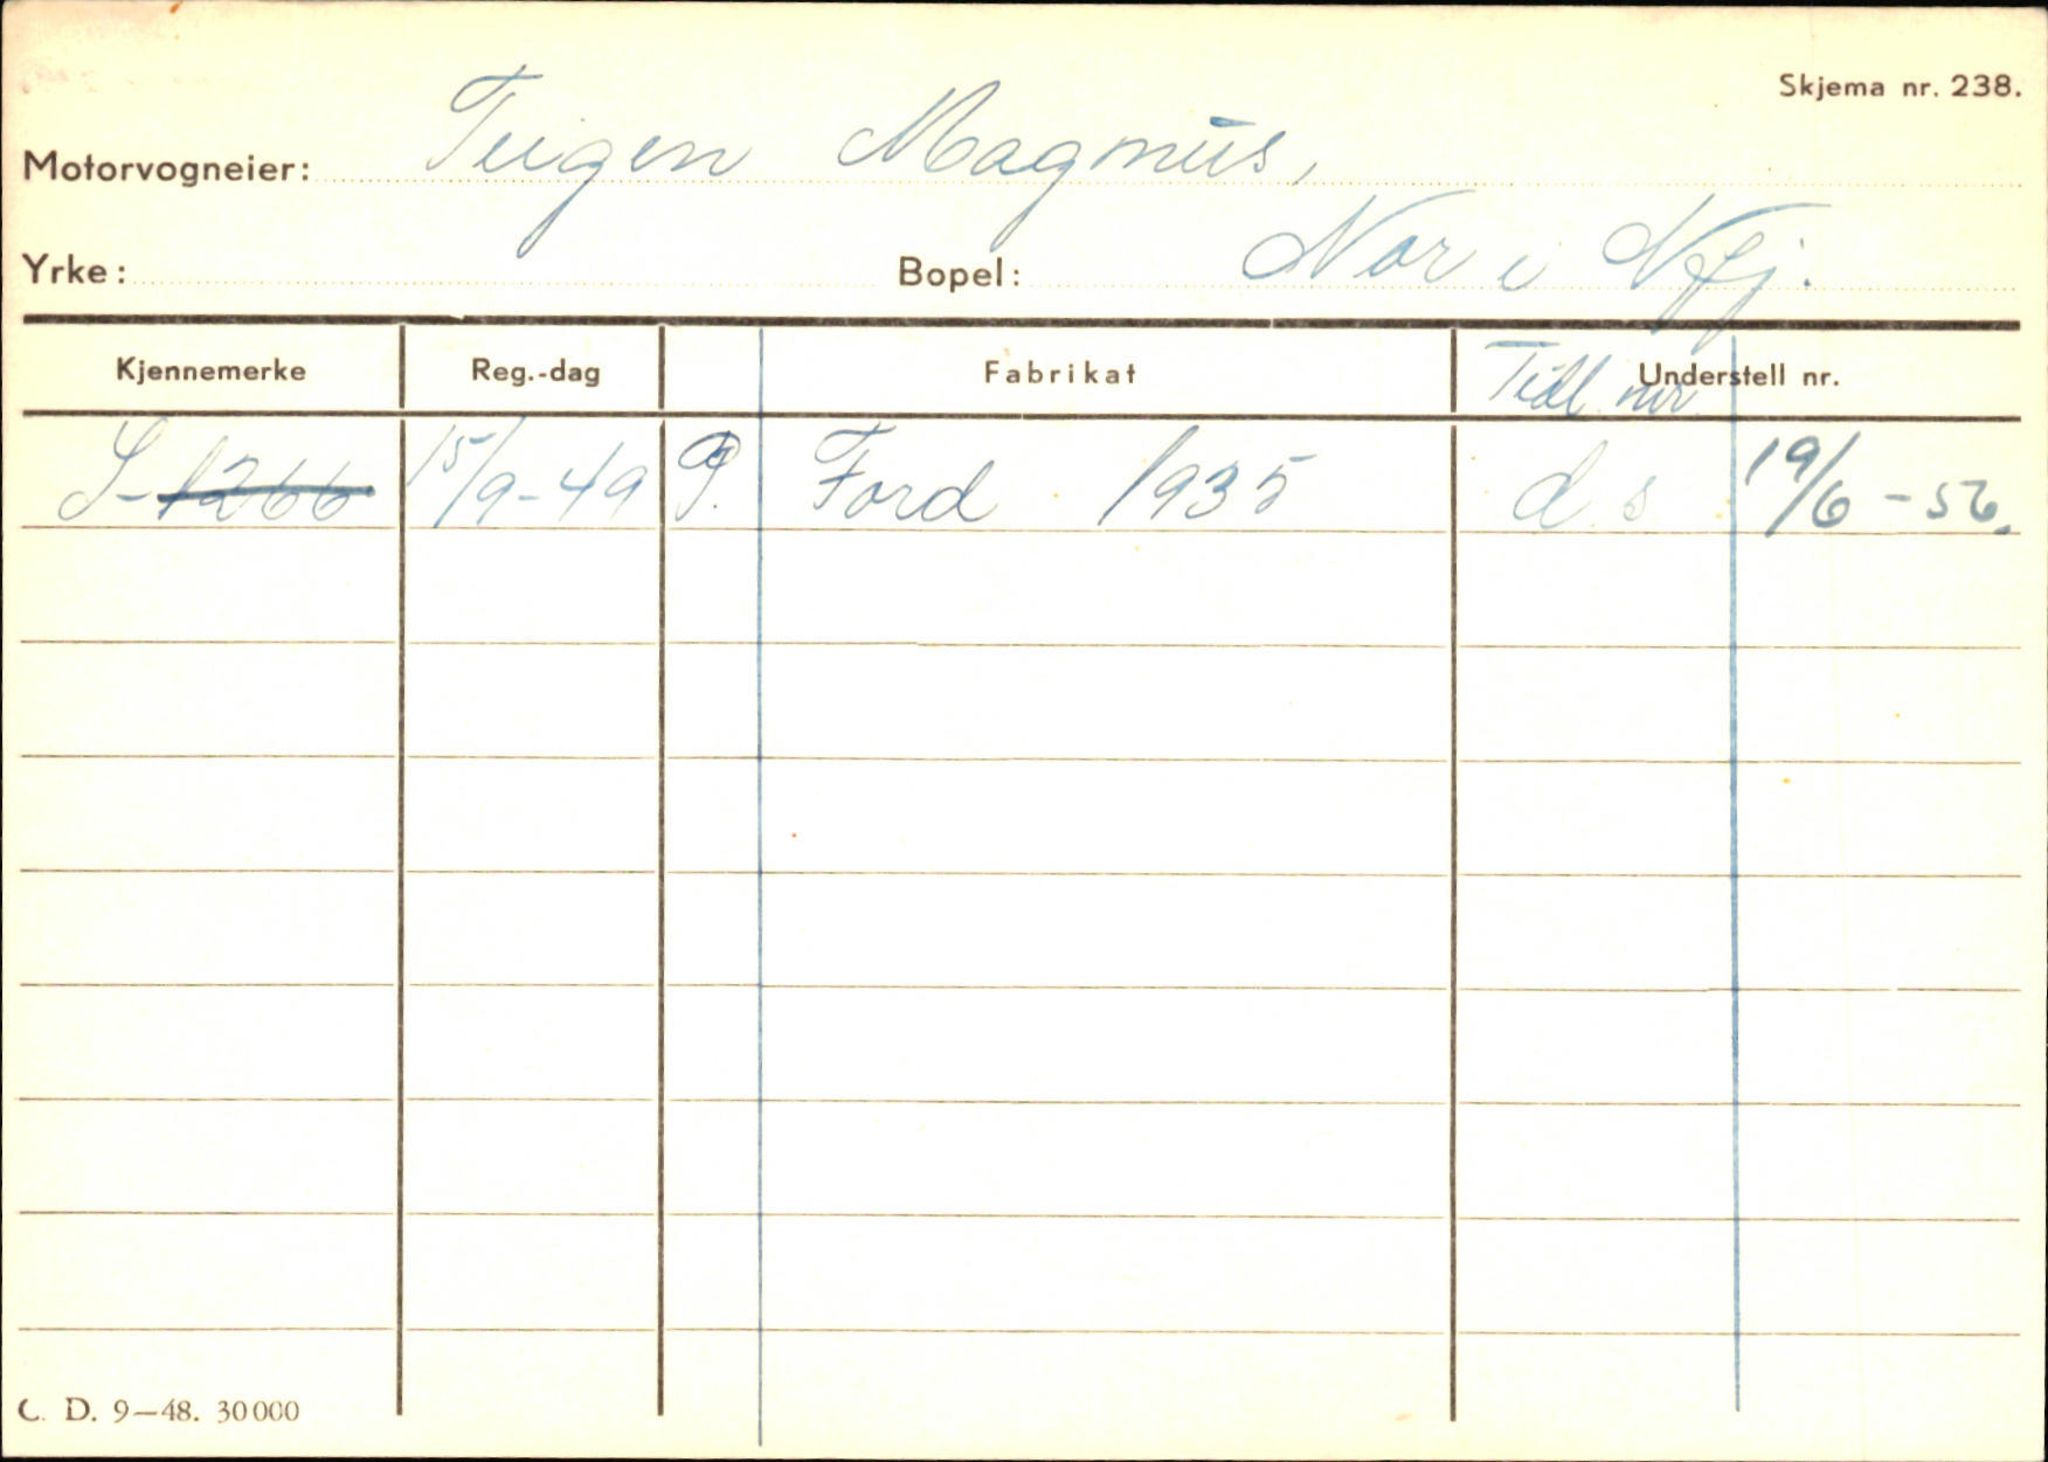 Skjema nr. 238.
Motorvogneier: Teigen Magnus,
Yrke: Bopel: Nor i Nfj.
Kjennemerke Reg.-dag Fabrikat Tidl. nr Understell nr.
S-1266 15/9-49 P. Ford 1935 d.s 19/6-56.
C. D. 9—48. 30000